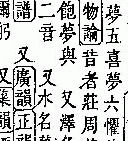 夢五喜夢六
物論昔者莊周
飽夢與 又澤名
二音 又水名
譜 又廣韻正韻
又集韻